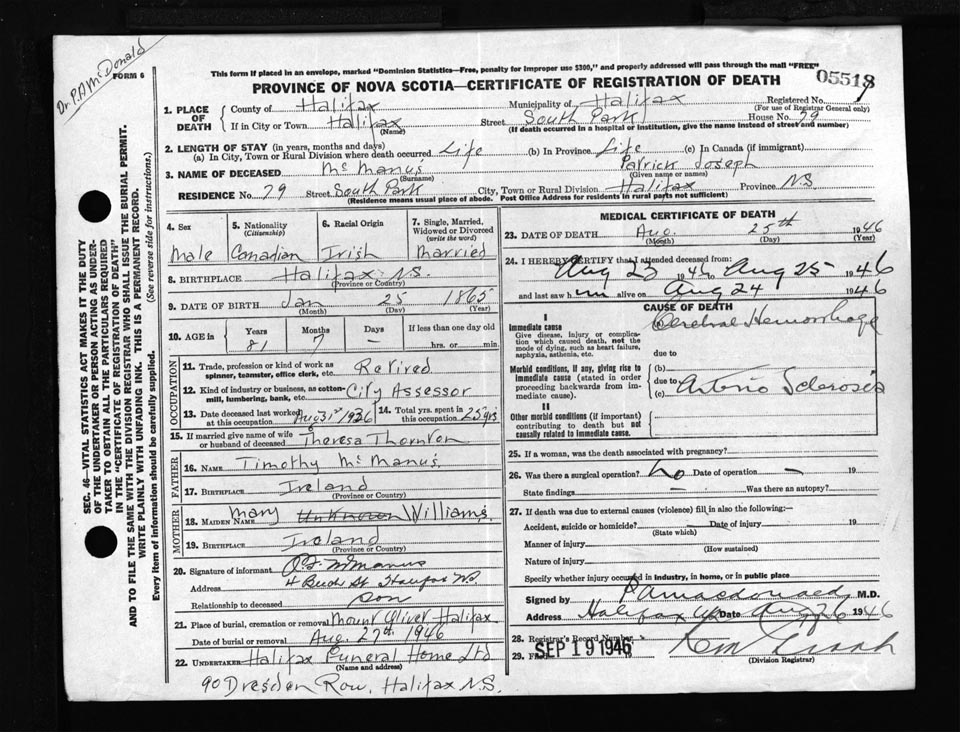 Dr. P.A. McDonald
FORM 6
This form if placed in an envelope, marked "Dominion Statistics—Free, penalty for improper use $300," and properly addressed will pass through the mail "FREE"
PROVINCE OF NOVA SCOTIA—CERTIFICATE OF REGISTRATION OF DEATH
05518
1. PLACE OF DEATH
County of Halifax Municipality of Halifax Registered No.
(For use of Registrar General only)
If in City or Town Halifax Street South Park House No. 79
(Name) (If death occurred in a hospital or institution, give the name instead of street and number)
2. LENGTH OF STAY (in years, months and days)
(a) In City, Town or Rural Division where death occurred Life (b) In Province Life (c) In Canada (if immigrant)
3. NAME OF DECEASED McManus Patrick Joseph
(Surname) (Given name or names)
RESIDENCE No. 79 Street South Park City, Town or Rural Division Halifax Province N.S.
(Residence means usual place of abode. Post Office Address for residents in rural parts not sufficient)
4. Sex
5. Nationality (Citizenship)
6. Racial Origin
7. Single, Married, Widowed or Divorced (write the word)
Male Canadian Irish Married
8. BIRTHPLACE Halifax N.S.
(Province or Country)
9. DATE OF BIRTH Jan 25 1865
(Month) (Day) (Year)
10. AGE in
Years Months Days If less than one day old
81 7 — hrs. or min.
OCCUPATION
11. Trade, profession or kind of work as spinner, teamster, office clerk, etc. Retired
12. Kind of industry or business, as cotton-mill, lumbering, bank, etc. City Assessor
13. Date deceased last worked at this occupation Aug 31st 1936
14. Total yrs. spent in this occupation 25 yrs
15. If married give name of wife or husband of deceased Theresa Thornton
FATHER
16. NAME Timothy McManus
17. BIRTHPLACE Ireland
(Province or Country)
MOTHER
18. MAIDEN NAME Mary Unknown Williams
19. BIRTHPLACE Ireland
(Province or Country)
20. Signature of informant McManus
Address 4 St Halifax NS
Relationship to deceased son
21. Place of burial, cremation or removal Mount Olivet Halifax
Date of burial or removal Aug. 27th 1946
22. UNDERTAKER Halifax Funeral Home Ltd
(Name and address)
90 Dresden Row, Halifax N.S.
MEDICAL CERTIFICATE OF DEATH
23. DATE OF DEATH Aug. 25th 1946
(Month) (Day) (Year)
24. I HEREBY CERTIFY that I attended deceased from:
Aug 23 1946 to Aug 25 1946
and last saw him alive on Aug 24 1946
CAUSE OF DEATH
I
Immediate cause
Give disease, injury or complication which caused death, not the mode of dying, such as heart failure, asphyxia, asthenia, etc.
Cerebral Hemorrhage
due to
Morbid conditions, if any, giving rise to immediate cause (stated in order proceeding backwards from immediate cause)
(b)
due to
(c) Arterio Sclerosis
II
Other morbid conditions (if important) contributing to death but not causally related to immediate cause.
25. If a woman, was the death associated with pregnancy?
26. Was there a surgical operation? no Date of operation — 19
State findings — Was there an autopsy?
27. If death was due to external causes (violence) fill in also the following:—
Accident, suicide or homicide? Date of injury 19
(State which)
Manner of injury
(How sustained)
Nature of injury
Specify whether injury occurred in industry, in home, or in public place
Signed by P A Macdonald M.D.
Address Halifax NS Date Aug 26 1946
28. Registrar's Record Number
29. SEP 19 1946
(Division Registrar)
SEC. 46—VITAL STATISTICS ACT MAKES IT THE DUTY
OF THE UNDERTAKER OR PERSON ACTING AS UNDER-
TAKER TO OBTAIN ALL THE PARTICULARS REQUIRED
IN THE "CERTIFICATE OF REGISTRATION OF DEATH"
AND TO FILE THE SAME WITH THE DIVISION REGISTRAR WHO SHALL ISSUE THE BURIAL PERMIT.
WRITE PLAINLY WITH UNFADING INK. THIS IS A PERMANENT RECORD.
Every item of information should be carefully supplied. (See reverse side for instructions.)